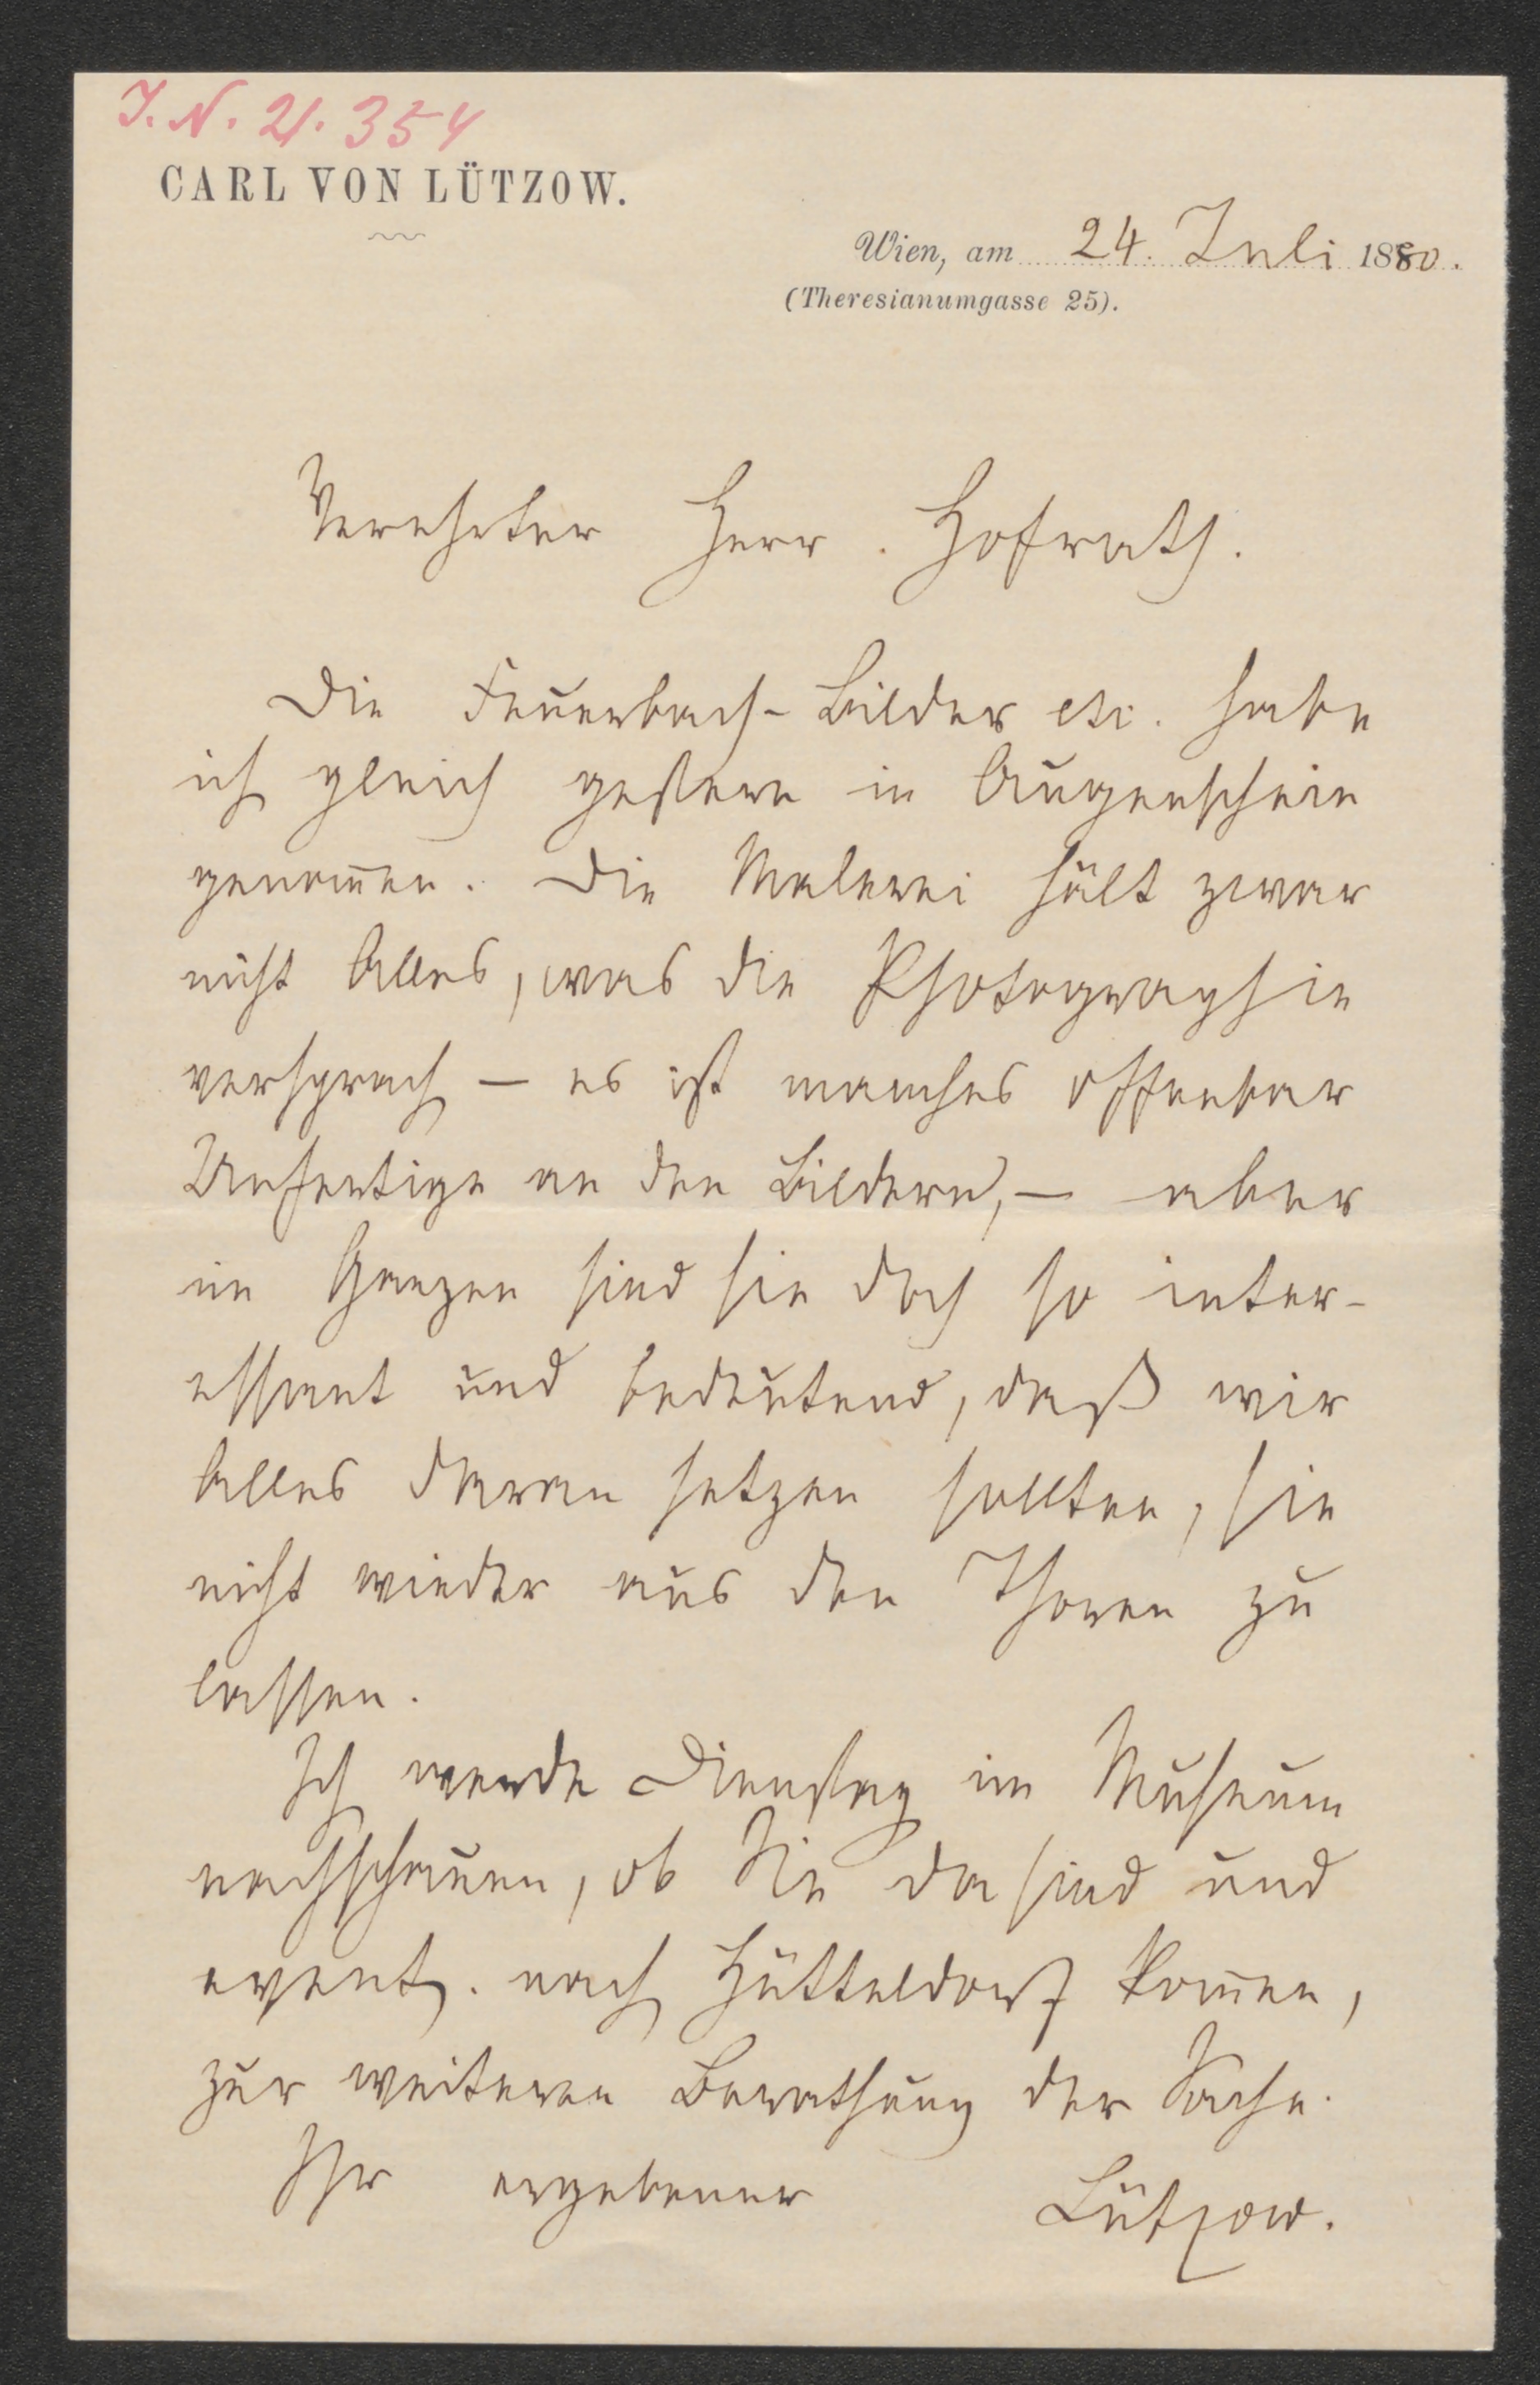 I. N. 21.354
CARL VON LÜTZOW.
Wien, am 24. Juli 1880.
(Theresianumgasse 25).
Verehrter Herr Hofrath.
Die Feuerbach-Bilder etc. habe
ich gleich gestern in Augenschein
genom̄en. Die Malerei hält zwar
nicht Alles, was die Photographie
versprach – es ist manches offenbar
Unfertige an den Bildern, – aber
im Ganzen sind sie doch so inter-
essant und bedeutend, daß wir
Alles daran setzen sollten, sie
nicht wieder aus den Thoren zu
lassen.
Ich werde Dienstag im Museum
nachschauen, ob Sie da sind und
event. nach Hütteldorf kom̄en,
zur weiteren Berathung der Sache.
Ihr ergebener Lützow.